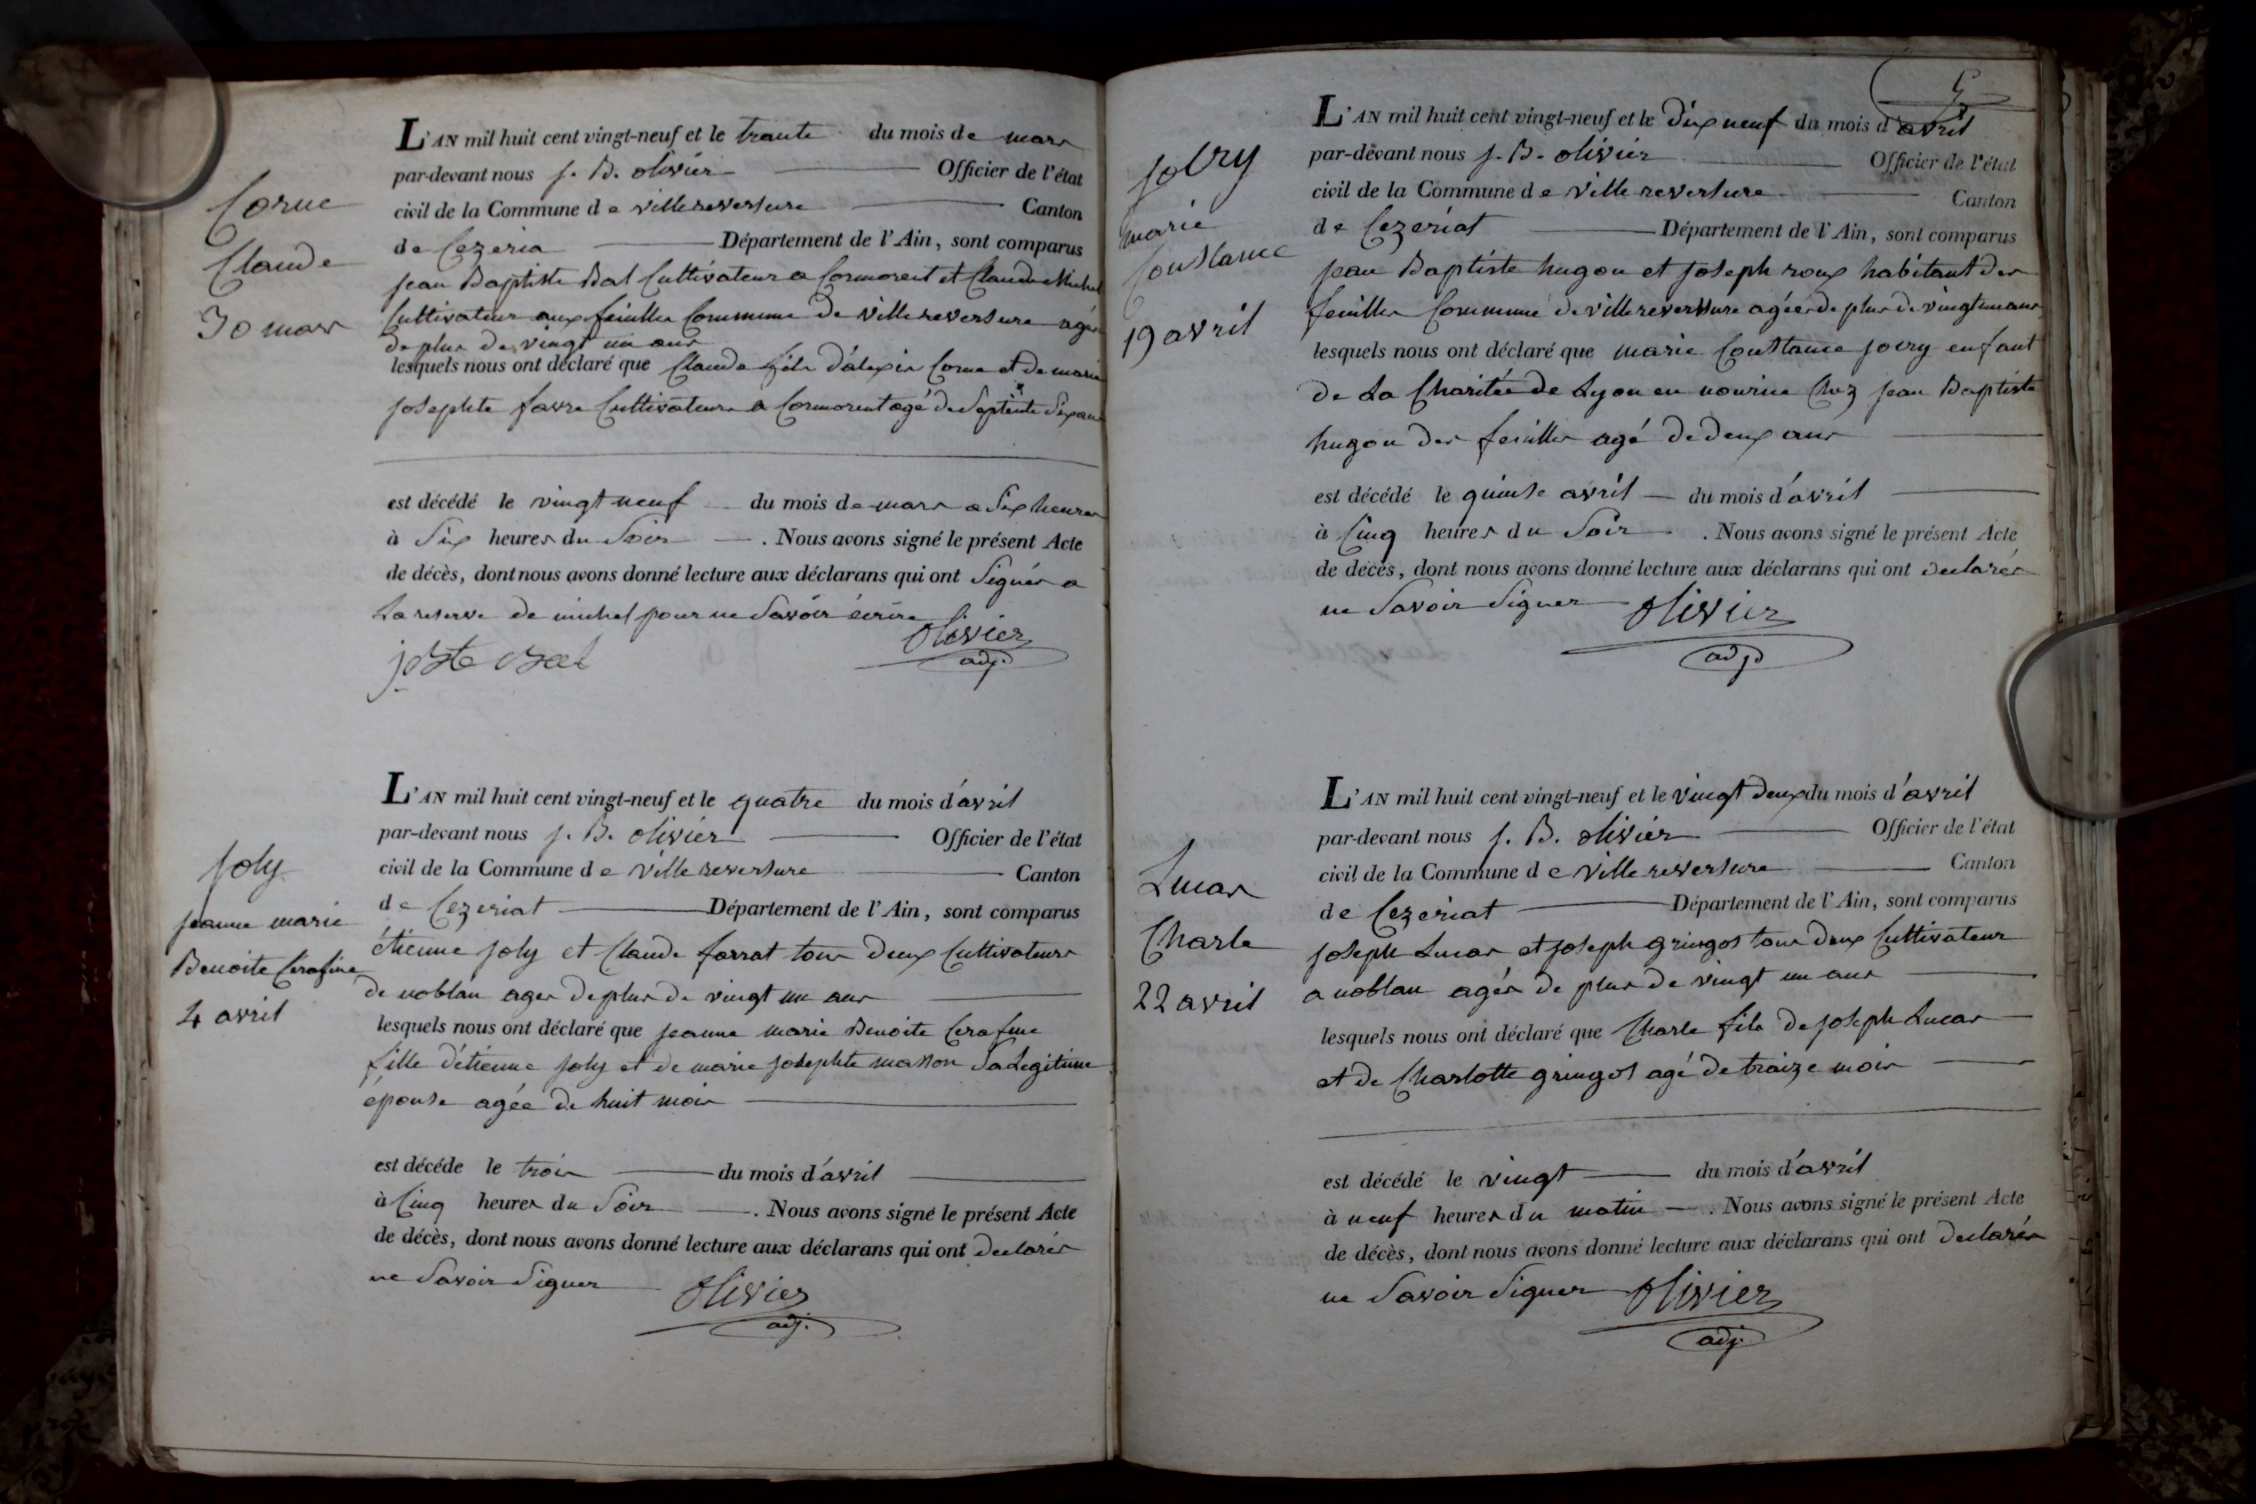 Corne
Claude
30 mars
L'AN mil huit cent vingt-neuf et le trante du mois de mars
par-devant nous J. B. olivier Officier de l'état
civil de la Commune de villereversure Canton
de Cezeria Département de l'Ain, sont comparus
jean Baptiste Bal Cultivateur a Cormorent et Claude Michel
Cultivateur aux feuilles Commune de villereversure agés
de plus de vingt un ans
lesquels nous ont déclaré que Claude fils d'alexis Corne et de marie
josephte favre Cultivateur a Cormorent agé de
est décédé le vingt neuf du mois de mars a Six heures
à Six heures du Soir . Nous avons signé le présent Acte
de décès, dont nous avons donné lecture aux déclarans qui ont Signés a
La reserve de michel pour ne Savoir écrire
olivier
adj.
joste
Joly
jeanne marie
Benoite Cerafine
4 avril
L'AN mil huit cent vingt-neuf et le quatre du mois d'avril
par-devant nous J. B. olivier Officier de l'état
civil de la Commune de villereversure Canton
de Cezeriat Département de l'Ain, sont comparus
étienne joly et Claude farrat tous deux Cultivateurs
de noblan ages de plus de vingt un ans
lesquels nous ont déclaré que jeanne marie Benoite Cerafine
fille d'étienne joly et de marie josephte masson Sa Legitime
épouse agée de huit mois
est décédé le trois du mois d'avril
à Cinq heures du Soir . Nous avons signé le présent Acte
de décès, dont nous avons donné lecture aux déclarans qui ont declarés
ne Savoir Signer olivier
adj.
5
jovry
marie
Constance
19 avril
L'AN mil huit cent vingt-neuf et le dix neuf du mois d'avril
par-devant nous J. B. olivier Officier de l'état
civil de la Commune de villereversure Canton
de Cezeriat Département de l'Ain, sont comparus
jean Baptiste hugon et joseph roux habitant des
feuilles Commune de villereversure agées de plus de vingt un ans
lesquels nous ont déclaré que marie Constance jovry enfant
de La Charitée de Lyon en nourice Chez jean Baptiste
hugon des feuilles agé de deux ans
est décédé le quinse avril du mois d'avril
à Cinq heures du Soir . Nous avons signé le présent Acte
de décès, dont nous avons donné lecture aux déclarans qui ont declarés
ne Savoir Signer olivier
adj
Lucas
Charle
22 avril
L'AN mil huit cent vingt-neuf et le vingt deux du mois d'avril
par-devant nous J. B. olivier Officier de l'état
civil de la Commune de villereversure Canton
de Cezeriat Département de l'Ain, sont comparus
joseph Lucas et joseph gringos tous deux Cultivateur
a noblan agés de plus de vingt un ans
lesquels nous ont déclaré que Charle fils de joseph Lucas
et de Charlotte gringos agé de traize mois
est décédé le vingt du mois d'avril
à neuf heures du matin . Nous avons signé le présent Acte
de décès, dont nous avons donné lecture aux déclarans qui ont declarés
ne Savoir Signer olivier
adj